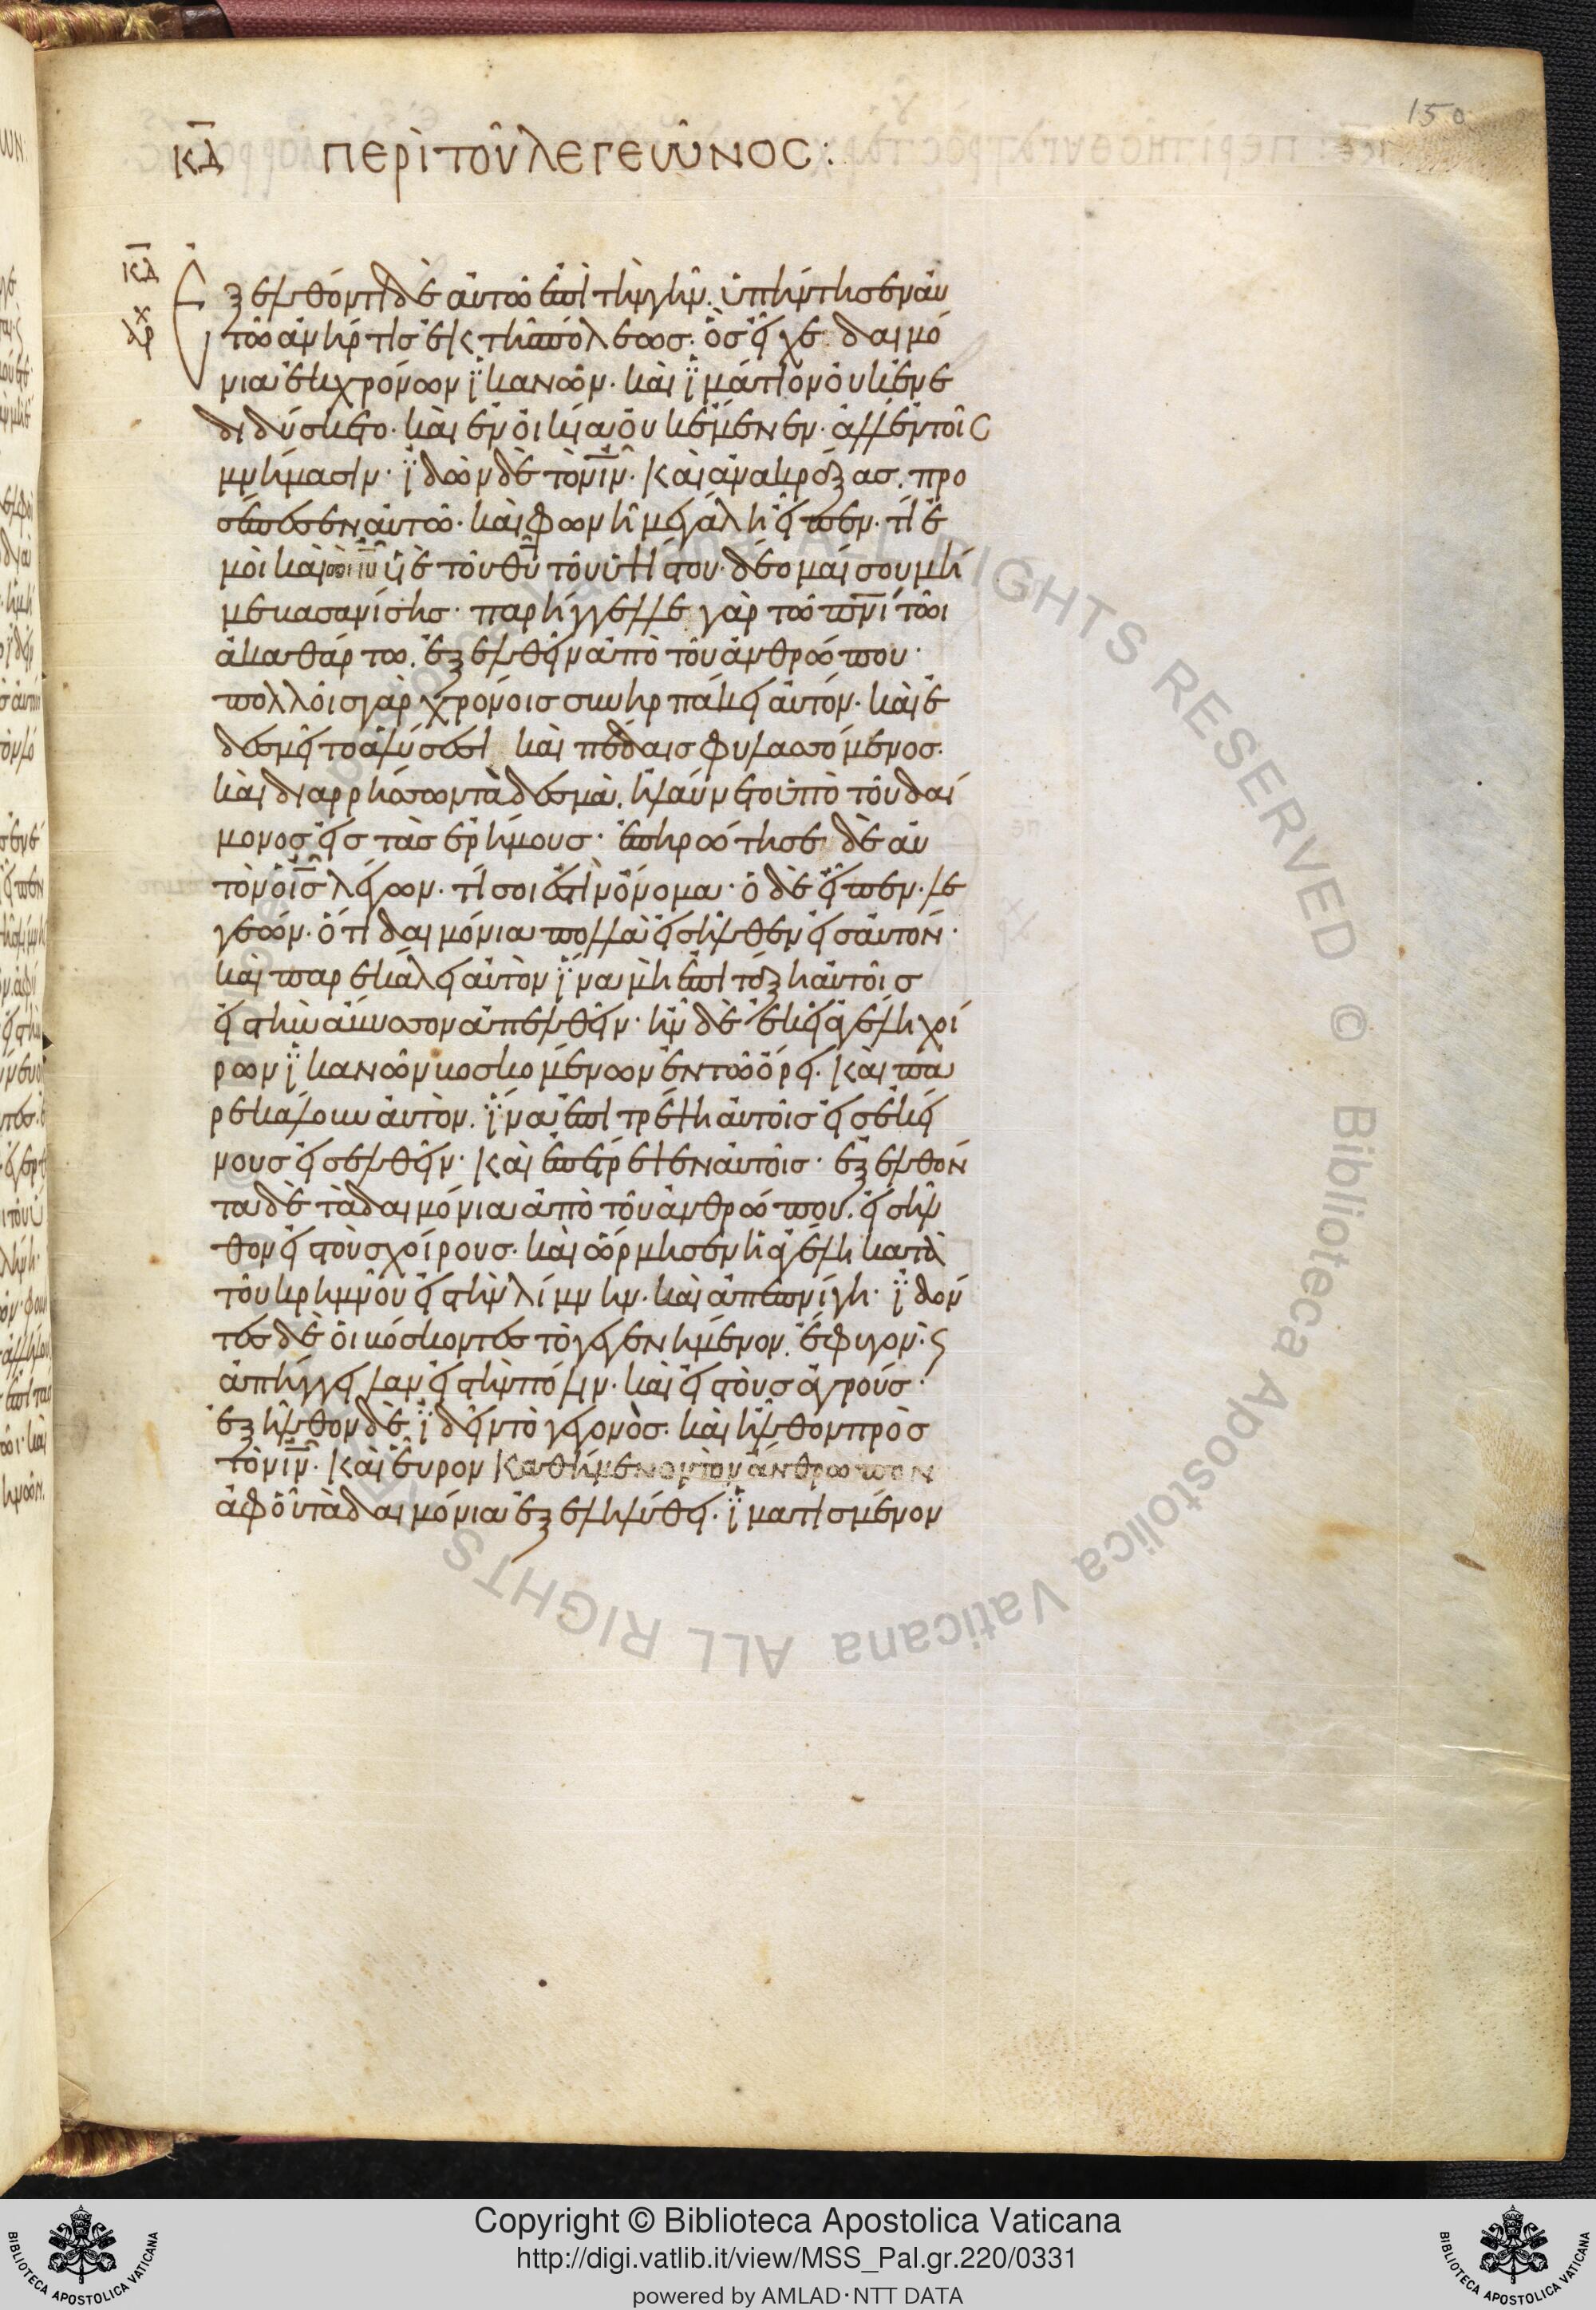 150
κδ περὶ τοῦ λεγεῶνος:
κδ
Ἐξελθόντι δὲ αὐτῶ ἐπὶ τὴν γῆν. ὑπήντησεν αὐ
τῶ ἀνήρ τις ἐκ τῆς πόλεως. ὃς εἶχε δαιμό
νια ἐκ χρόνων ϊκανῶν. καὶ ϊμάτιον οὐκ ἐνε
διδύσκετο. καὶ ἐν οἰκία οὐκ ἔμενεν. ἀλλ' ἐν τοῖς
μνήμασιν. ϊδὼν δὲ τὸν ιν. καὶ ἀνακράξας. προ
σέπεσεν αὐτῶ. καὶ φωνῆ μεγάλη εἶπεν. τί ἐ
μοὶ καὶ σοὶ ιυ υἱὲ τοῦ θυ τοῦ ὑψίστου. δέομαί σου μή
με βασανίσης. παρήγγελλε γὰρ τῶ πνι τῶι
ἀκαθάρτω. ἐξελθεῖν ἀπὸ τοῦ ἀνθρώπου.
πολλοῖς γὰρ χρόνοις συνηρπάκει αὐτόν. καὶ ἐ
δεσμεῖτο ἁλύσεσι καὶ πέδαις φυλασσόμενος.
καὶ διαρρήσσων τὰ δεσμὰ. ἠλαύνετο ὑπὸ τοῦ δαί
μονος εἰς τὰς ἐρήμους. ἐπηρώτησε δὲ αὐ
τὸν ὁ ις λέγων. τί σοι ἐστὶν ὄνομα. ὁ δὲ εἶπεν. λε
γεών. ὅτι δαιμόνια πολλὰ εἰσῆλθεν εἰς αὐτόν.
καὶ παρεκάλει αὐτὸν ϊνα μὴ ἐπιτάξη αὐτοῖς
εἰς τὴν ἄβυσσον ἀπελθεῖν. ἦν δὲ ἐκεῖ ἀγέλη χοί
ρων ϊκανῶν βοσκομένων ἐν τῶ ὄρει. καὶ πα
ρεκάλουν αὐτὸν. ϊνα ἐπιτρέψη αὐτοῖς εἰς ἐκεί
νους εἰσελθεῖν. καὶ ἐπέτρεψεν αὐτοῖς. ἐξελθόν
τα δὲ τὰ δαιμόνια ἀπὸ τοῦ ἀνθρώπου. εἰσῆλ
θον εἰς τοὺς χοίρους. καὶ ὥρμησεν ἡ ἀγέλη κατὰ
τοῦ κρημνοῦ εἰς τὴν λίμνην. καὶ ἀπεπνίγη. ϊδόν
τες δὲ οἱ βόσκοντες τὸ γεγενημένον. ἔφυγον. ϛ
ἀπήγγειλαν εἰς τὴν πόλιν. καὶ εἰς τοὺς ἀγρούς.
ἐξῆλθον δὲ ϊδεῖν τὸ γεγονὸς. καὶ ἦλθον πρὸς
τὸν ιν. καὶ εὗρον καθήμενον τὸν ἄνθρωπον
ἀφ' οὗ τὰ δαιμόνια ἐξεληλύθει. ϊματισμένον
Copyright © Biblioteca Apostolica Vaticana
http://digi.vatlib.it/view/MSS_Pal.gr.220/0331
powered by AMLAD·NTT DATA